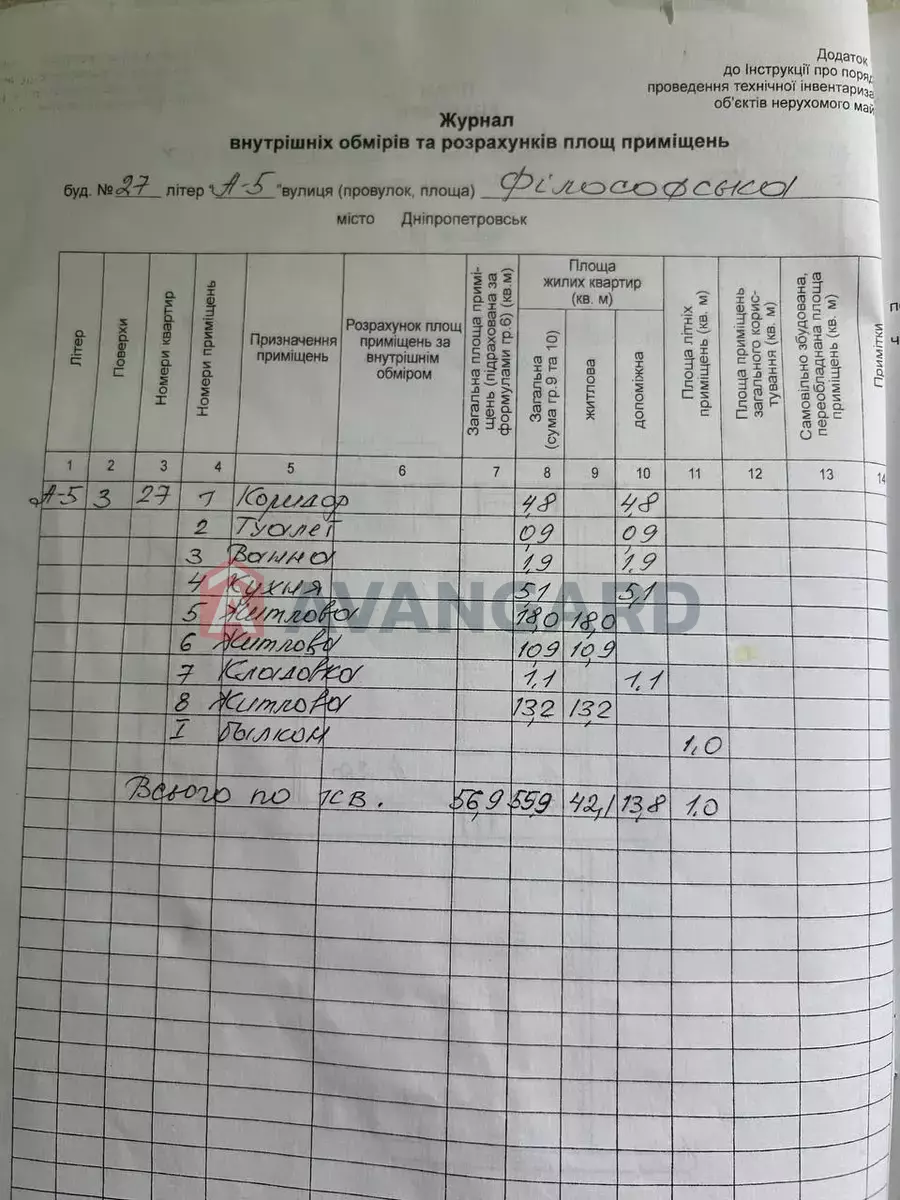 Додаток
до Інструкції про поряд
проведення технічної інвентариза
об'єктів нерухомого май
Журнал
внутрішніх обмірів та розрахунків площ приміщень
буд. № 27 літер "А-5" вулиця (провулок, площа) Філософська
місто Дніпропетровськ
Літер
Поверхи
Номери квартир
Номери приміщень
Призначення приміщень
Розрахунок площ приміщень за внутрішнім обміром
Загальна площа примі-щень (підрахована за формулами гр.6) (кв.м)
Площа жилих квартир (кв. м)
Загальна (сума гр.9 та 10)
житлова
допоміжна
Площа літніх приміщень (кв. м)
Площа приміщень загального корис-тування (кв. м)
Самовільно збудована, переобладнана площа приміщень (кв. м)
Примітки
1 2 3 4 5 6 7 8 9 10 11 12 13 14
А-5 3 27 1 Коридор 4,8 4,8
2 Туалет 0,9 0,9
3 Ванна 1,9 1,9
4 Кухня 5,1 5,1
5 Житлова 18,0 18,0
6 Житлова 10,9 10,9
7 Кладовка 1,1 1,1
8 Житлова 13,2 13,2
I Балкон 1,0
Всього по кв. 56,9 55,9 42,1 13,8 1,0
AVANGARD